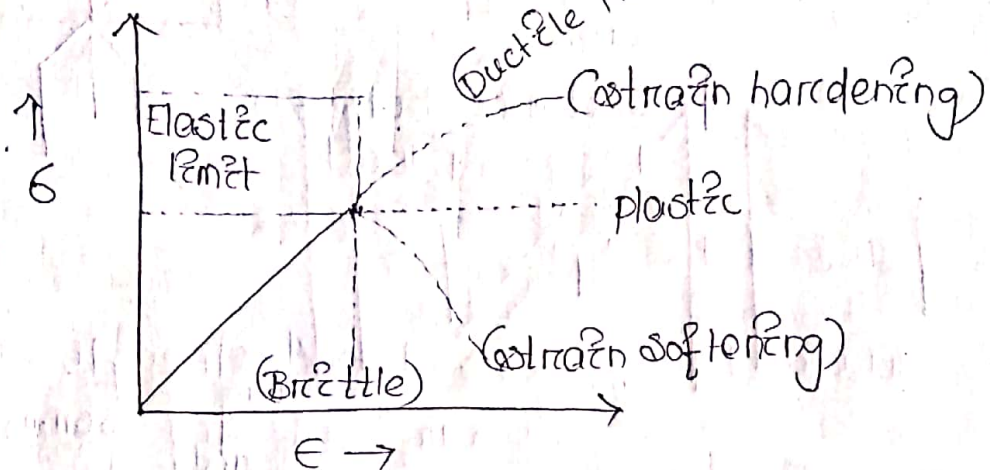 (Ductile
(strain hardening)
Elastic
limit
↑
σ
plastic
(strain softening)
(Brittle)
ϵ →